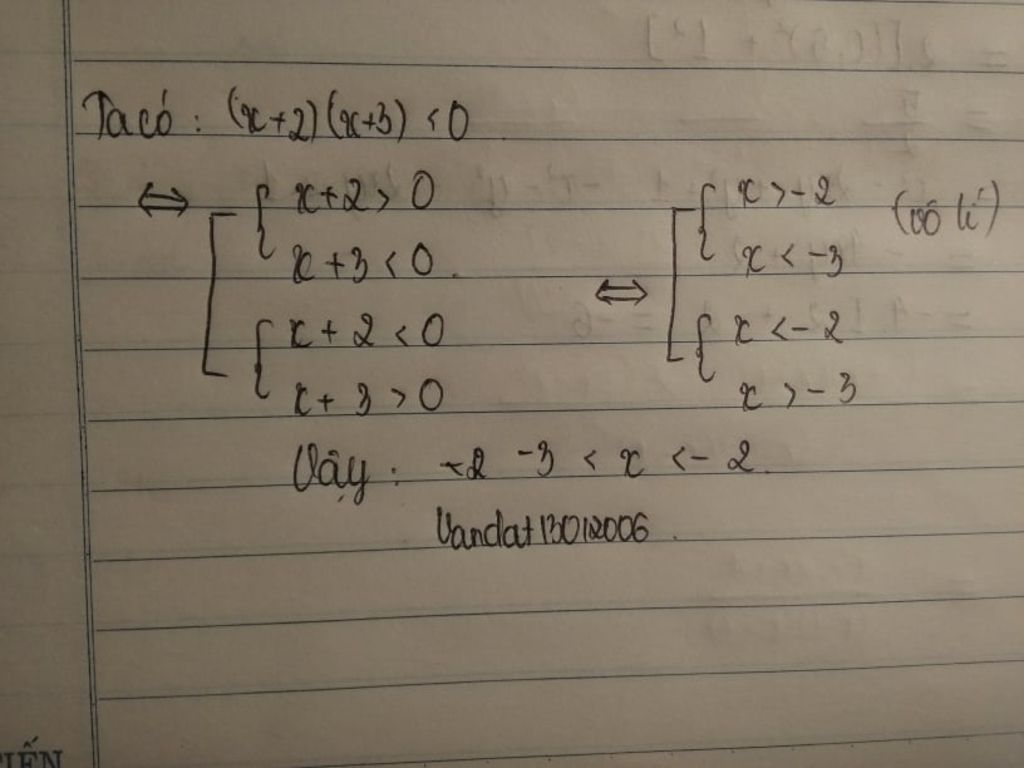 Ta có : (x+2)(x+3) < 0
⇔ [ { x+2 > 0 x+3 < 0 { x+2 < 0 x+3 > 0
⇔ [ { x > -2 x < -3 (vô lí) { x < -2 x > -3
Vậy : -3 < x < -2.
Vandat13012006.
TIẾN